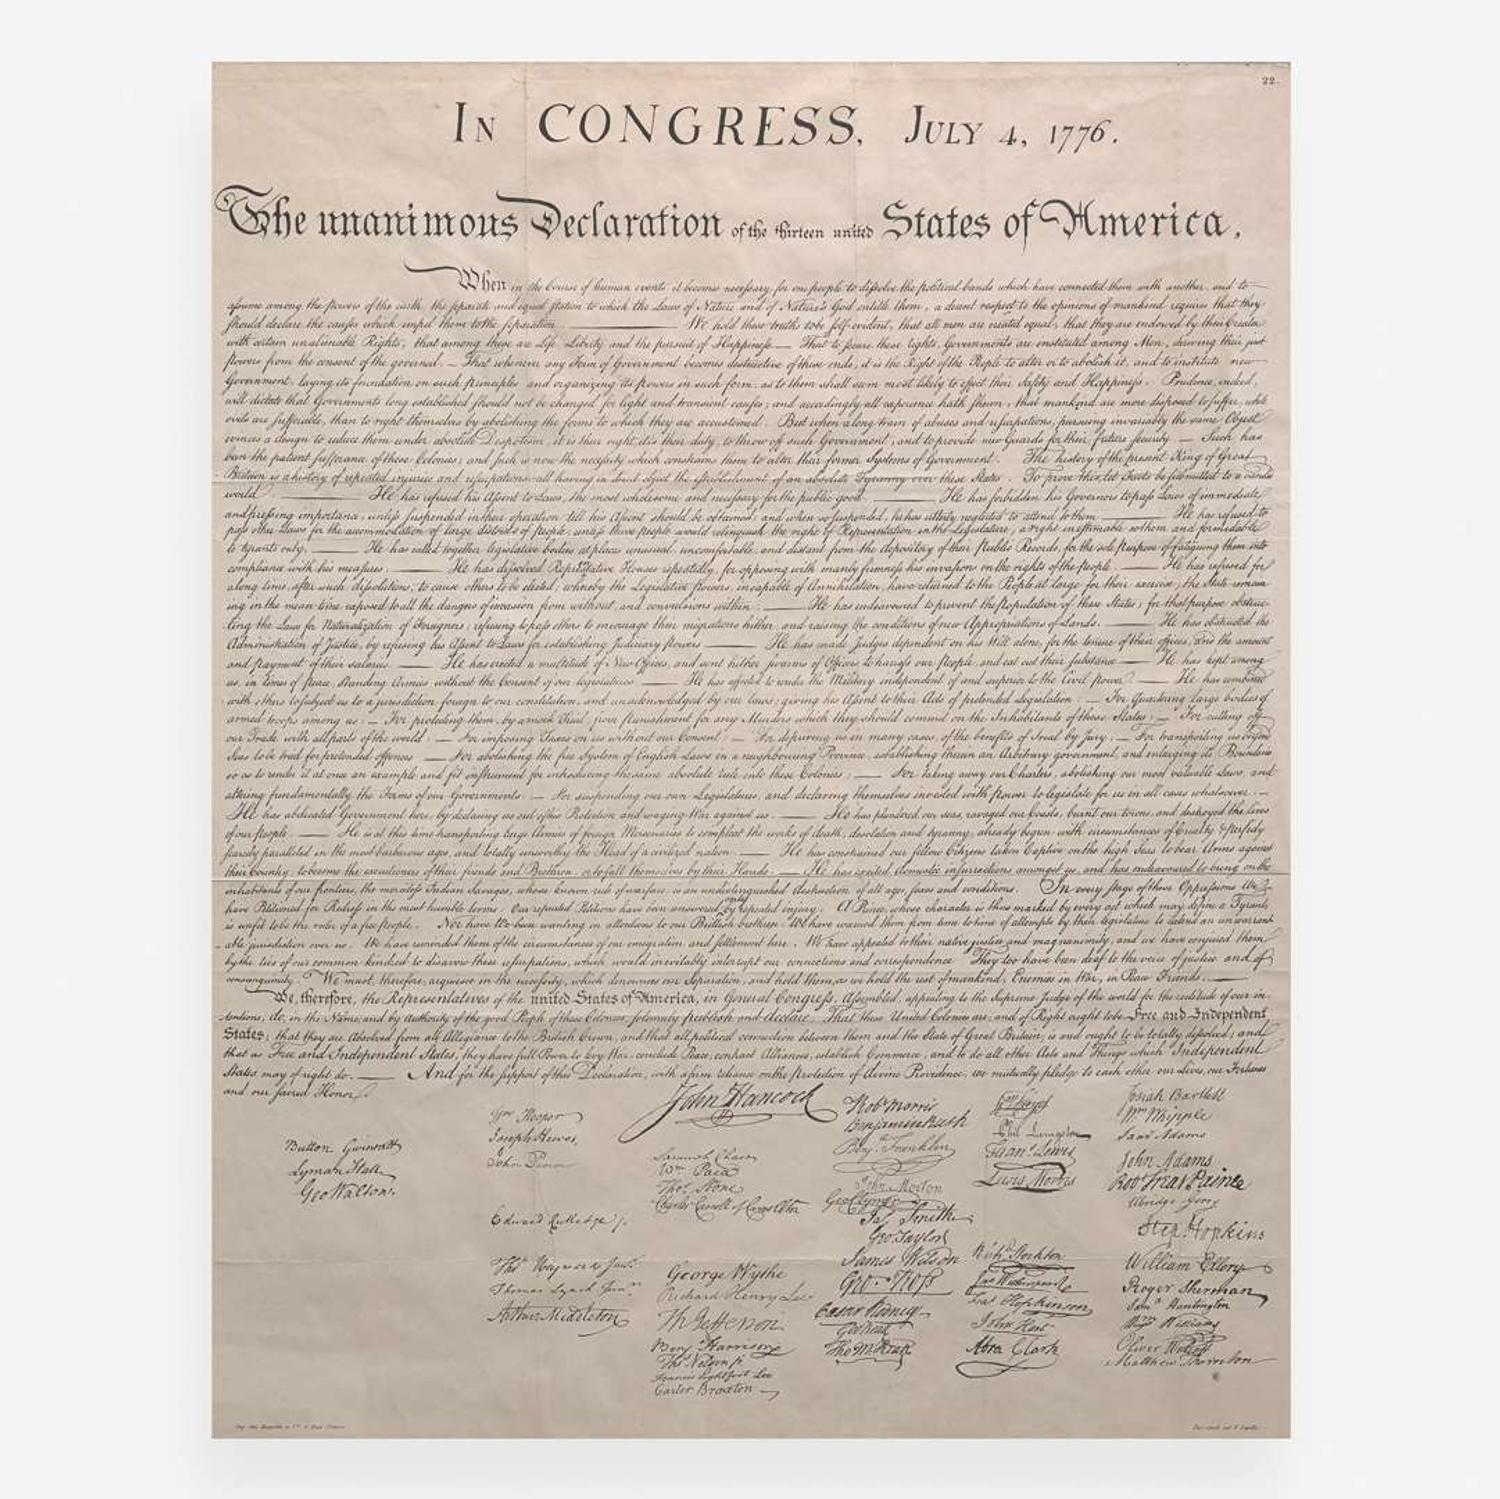 22.
In CONGRESS, July 4, 1776.
The unanimous Declaration of the thirteen united States of America,
When in the Course of human events, it becomes necessary for one people to dissolve the political bands which have connected them with another, and to
assume among the powers of the earth, the separate and equal station to which the Laws of Nature and of Nature's God entitle them, a decent respect to the opinions of mankind requires that they
should declare the causes which impel them to the separation. We hold these truths to be self-evident, that all men are created equal, that they are endowed by their Creator
with certain unalienable Rights, that among these are Life, Liberty and the pursuit of Happiness.— That to secure these rights, Governments are instituted among Men, deriving their just
powers from the consent of the governed. — That whenever any Form of Government becomes destructive of these ends, it is the Right of the People to alter or to abolish it, and to institute new
Government, laying its foundation on such principles and organizing its powers in such form, as to them shall seem most likely to effect their Safety and Happiness. Prudence, indeed,
will dictate that Governments long established should not be changed for light and transient causes; and accordingly all experience hath shewn, that mankind are more disposed to suffer, while
evils are sufferable, than to right themselves by abolishing the forms to which they are accustomed. But when a long train of abuses and usurpations, pursuing invariably the same Object
evinces a design to reduce them under absolute Despotism, it is their right, it is their duty, to throw off such Government, and to provide new Guards for their future security. — Such has
been the patient sufferance of these Colonies; and such is now the necessity which constrains them to alter their former Systems of Government. The history of the present King of Great
Britain is a history of repeated injuries and usurpations, all having in direct object the establishment of an absolute Tyranny over these States. To prove this, let Facts be submitted to a candid
world. He has refused his Assent to Laws, the most wholesome and necessary for the public good. He has forbidden his Governors to pass Laws of immediate
and pressing importance, unless suspended in their operation till his Assent should be obtained; and when so suspended, he has utterly neglected to attend to them. He has refused to
pass other Laws for the accommodation of large districts of people, unless those people would relinquish the right of Representation in the Legislature, a right inestimable to them and formidable
to tyrants only. He has called together legislative bodies at places unusual, uncomfortable, and distant from the depository of their Public Records, for the sole purpose of fatiguing them into
compliance with his measures. He has dissolved Representative Houses repeatedly, for opposing with manly firmness his invasions on the rights of the people. He has refused for
a long time, after such dissolutions, to cause others to be elected; whereby the Legislative powers, incapable of Annihilation, have returned to the People at large for their exercise; the State remain
ing in the mean time exposed to all the dangers of invasion from without, and convulsions within. He has endeavoured to prevent the population of these States; for that purpose obstruc-
ting the Laws for Naturalization of Foreigners; refusing to pass others to encourage their migrations hither, and raising the conditions of new Appropriations of Lands. He has obstructed the
Administration of Justice, by refusing his Assent to Laws for establishing Judiciary powers. He has made Judges dependent on his Will alone, for the tenure of their offices, and the amount
and payment of their salaries. He has erected a multitude of New Offices, and sent hither swarms of Officers to harass our people, and eat out their substance. He has kept among
us, in times of peace, Standing Armies without the Consent of our legislatures. He has affected to render the Military independent of and superior to the Civil power. He has combined
with others to subject us to a jurisdiction foreign to our constitution, and unacknowledged by our laws; giving his Assent to their Acts of pretended Legislation: — For Quartering large bodies of
armed troops among us: — For protecting them, by a mock Trial, from punishment for any Murders which they should commit on the Inhabitants of these States: — For cutting off
our Trade with all parts of the world: — For imposing Taxes on us without our Consent: — For depriving us in many cases, of the benefits of Trial by Jury: — For transporting us beyond
Seas to be tried for pretended offences — For abolishing the free System of English Laws in a neighbouring Province, establishing therein an Arbitrary government, and enlarging its Boundaries
so as to render it at once an example and fit instrument for introducing the same absolute rule into these Colonies: — For taking away our Charters, abolishing our most valuable Laws, and
altering fundamentally the Forms of our Governments: — For suspending our own Legislatures, and declaring themselves invested with power to legislate for us in all cases whatsoever. —
He has abdicated Government here, by declaring us out of his Protection and waging War against us. He has plundered our seas, ravaged our Coasts, burnt our towns, and destroyed the lives
of our people. He is at this time transporting large Armies of foreign Mercenaries to compleat the works of death, desolation and tyranny, already begun with circumstances of Cruelty & perfidy
scarcely paralleled in the most barbarous ages, and totally unworthy the Head of a civilized nation. He has constrained our fellow Citizens taken Captive on the high Seas to bear Arms against
their Country, to become the executioners of their friends and Brethren, or to fall themselves by their Hands. He has excited domestic insurrections amongst us, and has endeavoured to bring on the
inhabitants of our frontiers, the merciless Indian Savages, whose known rule of warfare, is an undistinguished destruction of all ages, sexes and conditions. In every stage of these Oppressions We
have Petitioned for Redress in the most humble terms: Our repeated Petitions have been answered only by repeated injury. A Prince, whose character is thus marked by every act which may define a Tyrant,
is unfit to be the ruler of a free people. Nor have We been wanting in attentions to our Brittish brethren. We have warned them from time to time of attempts by their legislature to extend an unwarrant
able jurisdiction over us. We have reminded them of the circumstances of our emigration and settlement here. We have appealed to their native justice and magnanimity, and we have conjured them
by the ties of our common kindred to disavow these usurpations, which, would inevitably interrupt our connections and correspondence. They too have been deaf to the voice of justice and of
consanguinity. We must, therefore, acquiesce in the necessity, which denounces our Separation, and hold them, as we hold the rest of mankind, Enemies in War, in Peace Friends.
We, therefore, the Representatives of the united States of America, in General Congress, Assembled, appealing to the Supreme Judge of the world for the rectitude of our in-
tentions, do, in the Name, and by Authority of the good People of these Colonies, solemnly publish and declare, That these United Colonies are, and of Right ought to be Free and Independent
States; that they are Absolved from all Allegiance to the British Crown, and that all political connection between them and the State of Great Britain, is and ought to be totally dissolved; and
that as Free and Independent States, they have full Power to levy War, conclude Peace, contract Alliances, establish Commerce, and to do all other Acts and Things which Independent
States may of right do. And for the support of this Declaration, with a firm reliance on the protection of divine Providence, we mutually pledge to each other our Lives, our Fortunes
and our sacred Honor.
Button Gwinnett
Lyman Hall
Geo Walton.
Wm Hooper
Joseph Hewes,
John Penn
Edward Rutledge /.
Thos Heyward Junr.
Thomas Lynch Junr.
Arthur Middleton
John Hancock
Samuel Chase
Wm Paca
Thos Stone
Charles Carroll of Carrollton
George Wythe
Richard Henry Lee
Th Jefferson
Benj Harrison
Thos Nelson jr
Francis Lightfoot Lee
Carter Braxton
Robt Morris
Benjamin Rush
Benja Franklin
John Morton
Geo Clymer
Jas Smith
Geo Taylor
James Wilson
Geo. Ross
Caesar Rodney
Geo Read
Tho M:Kean
Wm Floyd
Phil Livingston
Frans Lewis
Lewis Morris
Richd Stockton
Jno Witherspoon
Fras Hopkinson
John Hart
Abra Clark
Josiah Bartlett
Wm Whipple
Saml Adams
John Adams
Robt Treat Paine
Elbridge Gerry
Step Hopkins
William Ellery
Roger Sherman
Saml Huntington
Wm Williams
Oliver Wolcott
Matthew Thornton